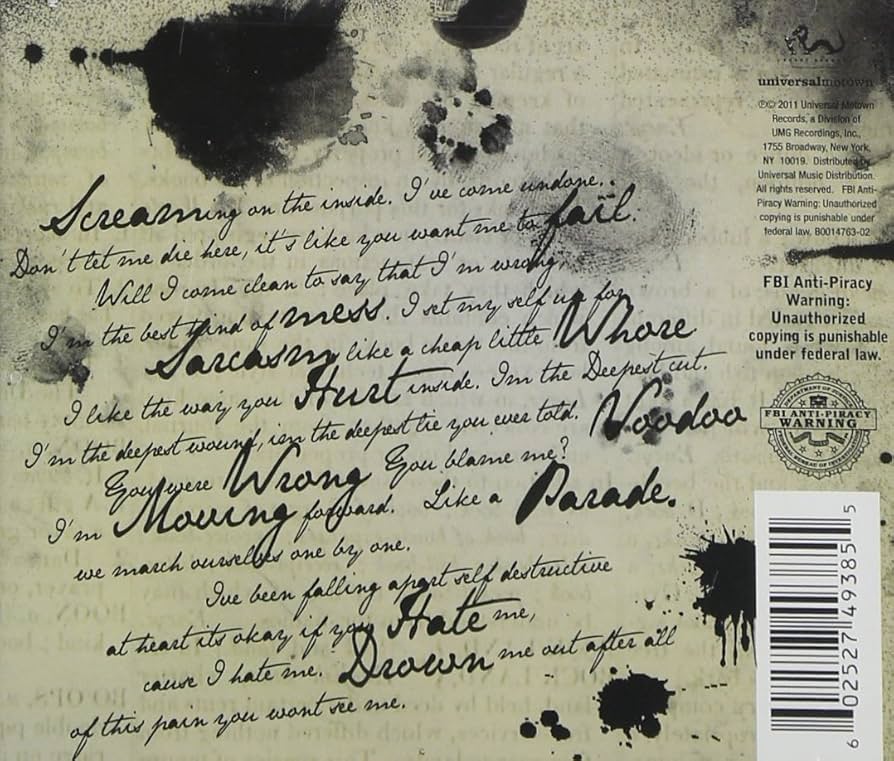 Screaming on the inside. I've come undone.
Don't let me die here, it's like you want me to fail.
Will I come clean to say that I'm wrong,
I'm the best kind of mess. I set my self up for
Sarcasm like a cheap little Whore
I like the way you Hurt inside. Im the Deepest cut.
I'm the deepest wound, im the deepest lie you ever told. Voodoo
You were Wrong You blame me?
I'm Moving forward. Like a Parade.
we march ourselves one by one.
Ive been falling apart self destructive
at heart its okay if you Hate me,
cause I hate me. Drown me out after all
of this pain you wont see me.
universalmotown
℗© 2011 Universal Motown
Records, a Division of
UMG Recordings, Inc.,
1755 Broadway, New York,
NY 10019. Distributed by
Universal Music Distribution.
All rights reserved. FBI Anti-
Piracy Warning: Unauthorized
copying is punishable under
federal law. B0014763-02
FBI Anti-Piracy
Warning:
Unauthorized
copying is punishable
under federal law.
FBI ANTI-PIRACY
WARNING
6 02527 49385 5